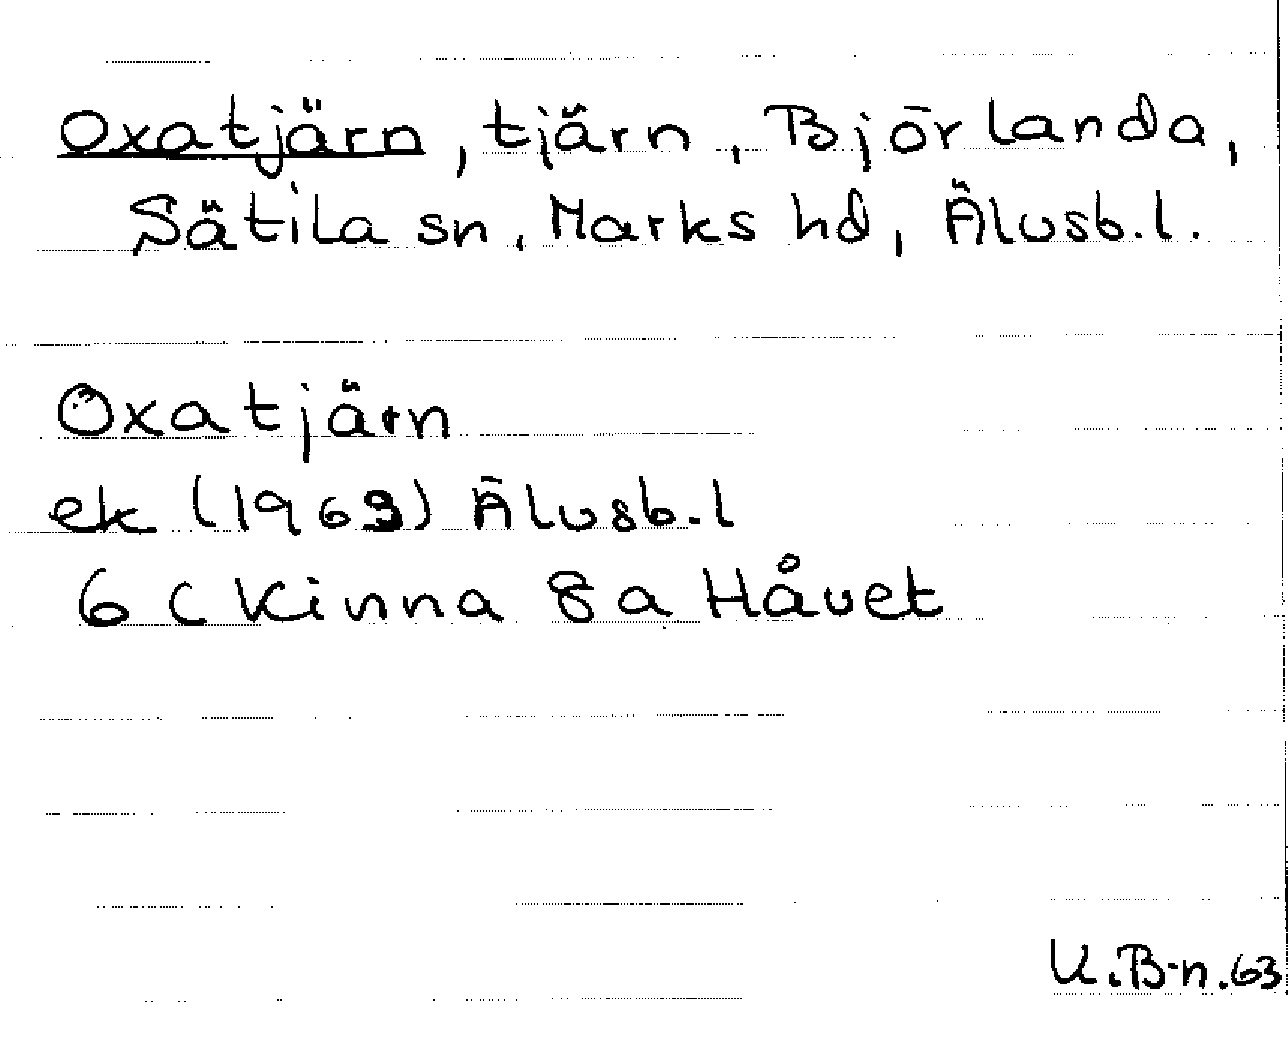 Oxatjärn, tjärn, Björlanda,
Sätila sn, Marks hd, Älvsb.l.
Oxatjärn
ek (1963) Älvsb.l
6 C Kinna 8a Håvet
U.B-n.63